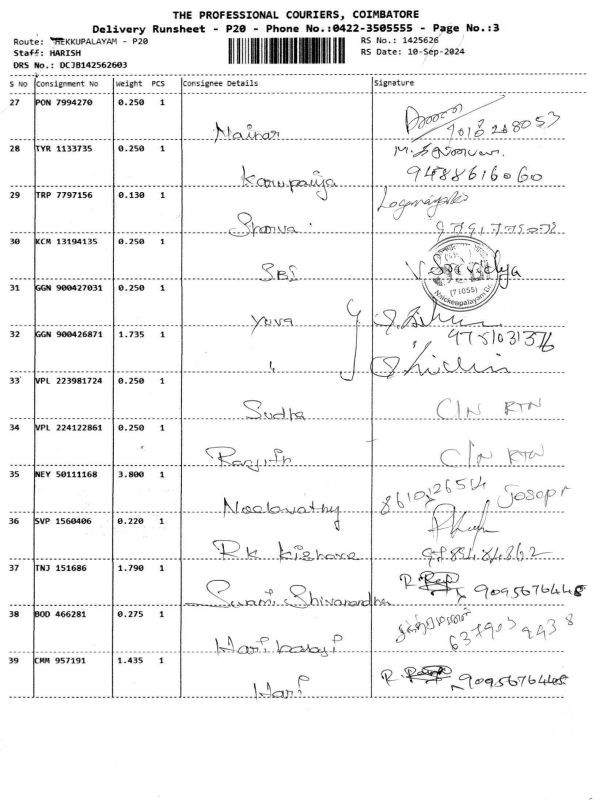 THE PROFESSIONAL COURIERS, COIMBATORE
Delivery Runsheet - P20 - Phone No.:0422-3505555 - Page No.:3
Route: HEKKUPALAYAM - P20
RS No.: 1425626
Staff: HARISH
RS Date: 10-Sep-2024
DRS No.: DCJB142562603
S No Consignment No Weight PCS Consignee Details Signature
27 PON 7994270 0.250 1
Nainar
28 TYR 1133735 0.250 1
9488616060
29 TRP 7797156 0.130 1
30 KCM 13194135 0.250 1
SBI
(71055)
31 GGN 900427031 0.250 1
Yuva
32 GGN 900426871 1.735 1
"
33 VPL 223981724 0.250 1
Sudha C/N RTN
34 VPL 224122861 0.250 1
Ranjith C/N RTN
35 NEY 50111168 3.800 1
36 SVP 1560406 0.220 1
RK Kishore
37 TNJ 151686 1.790 1
Swami Shivanandha 9095676448
38 BOD 466281 0.275 1
Hari balaji
39 CMM 957191 1.435 1
Hari 9095676448